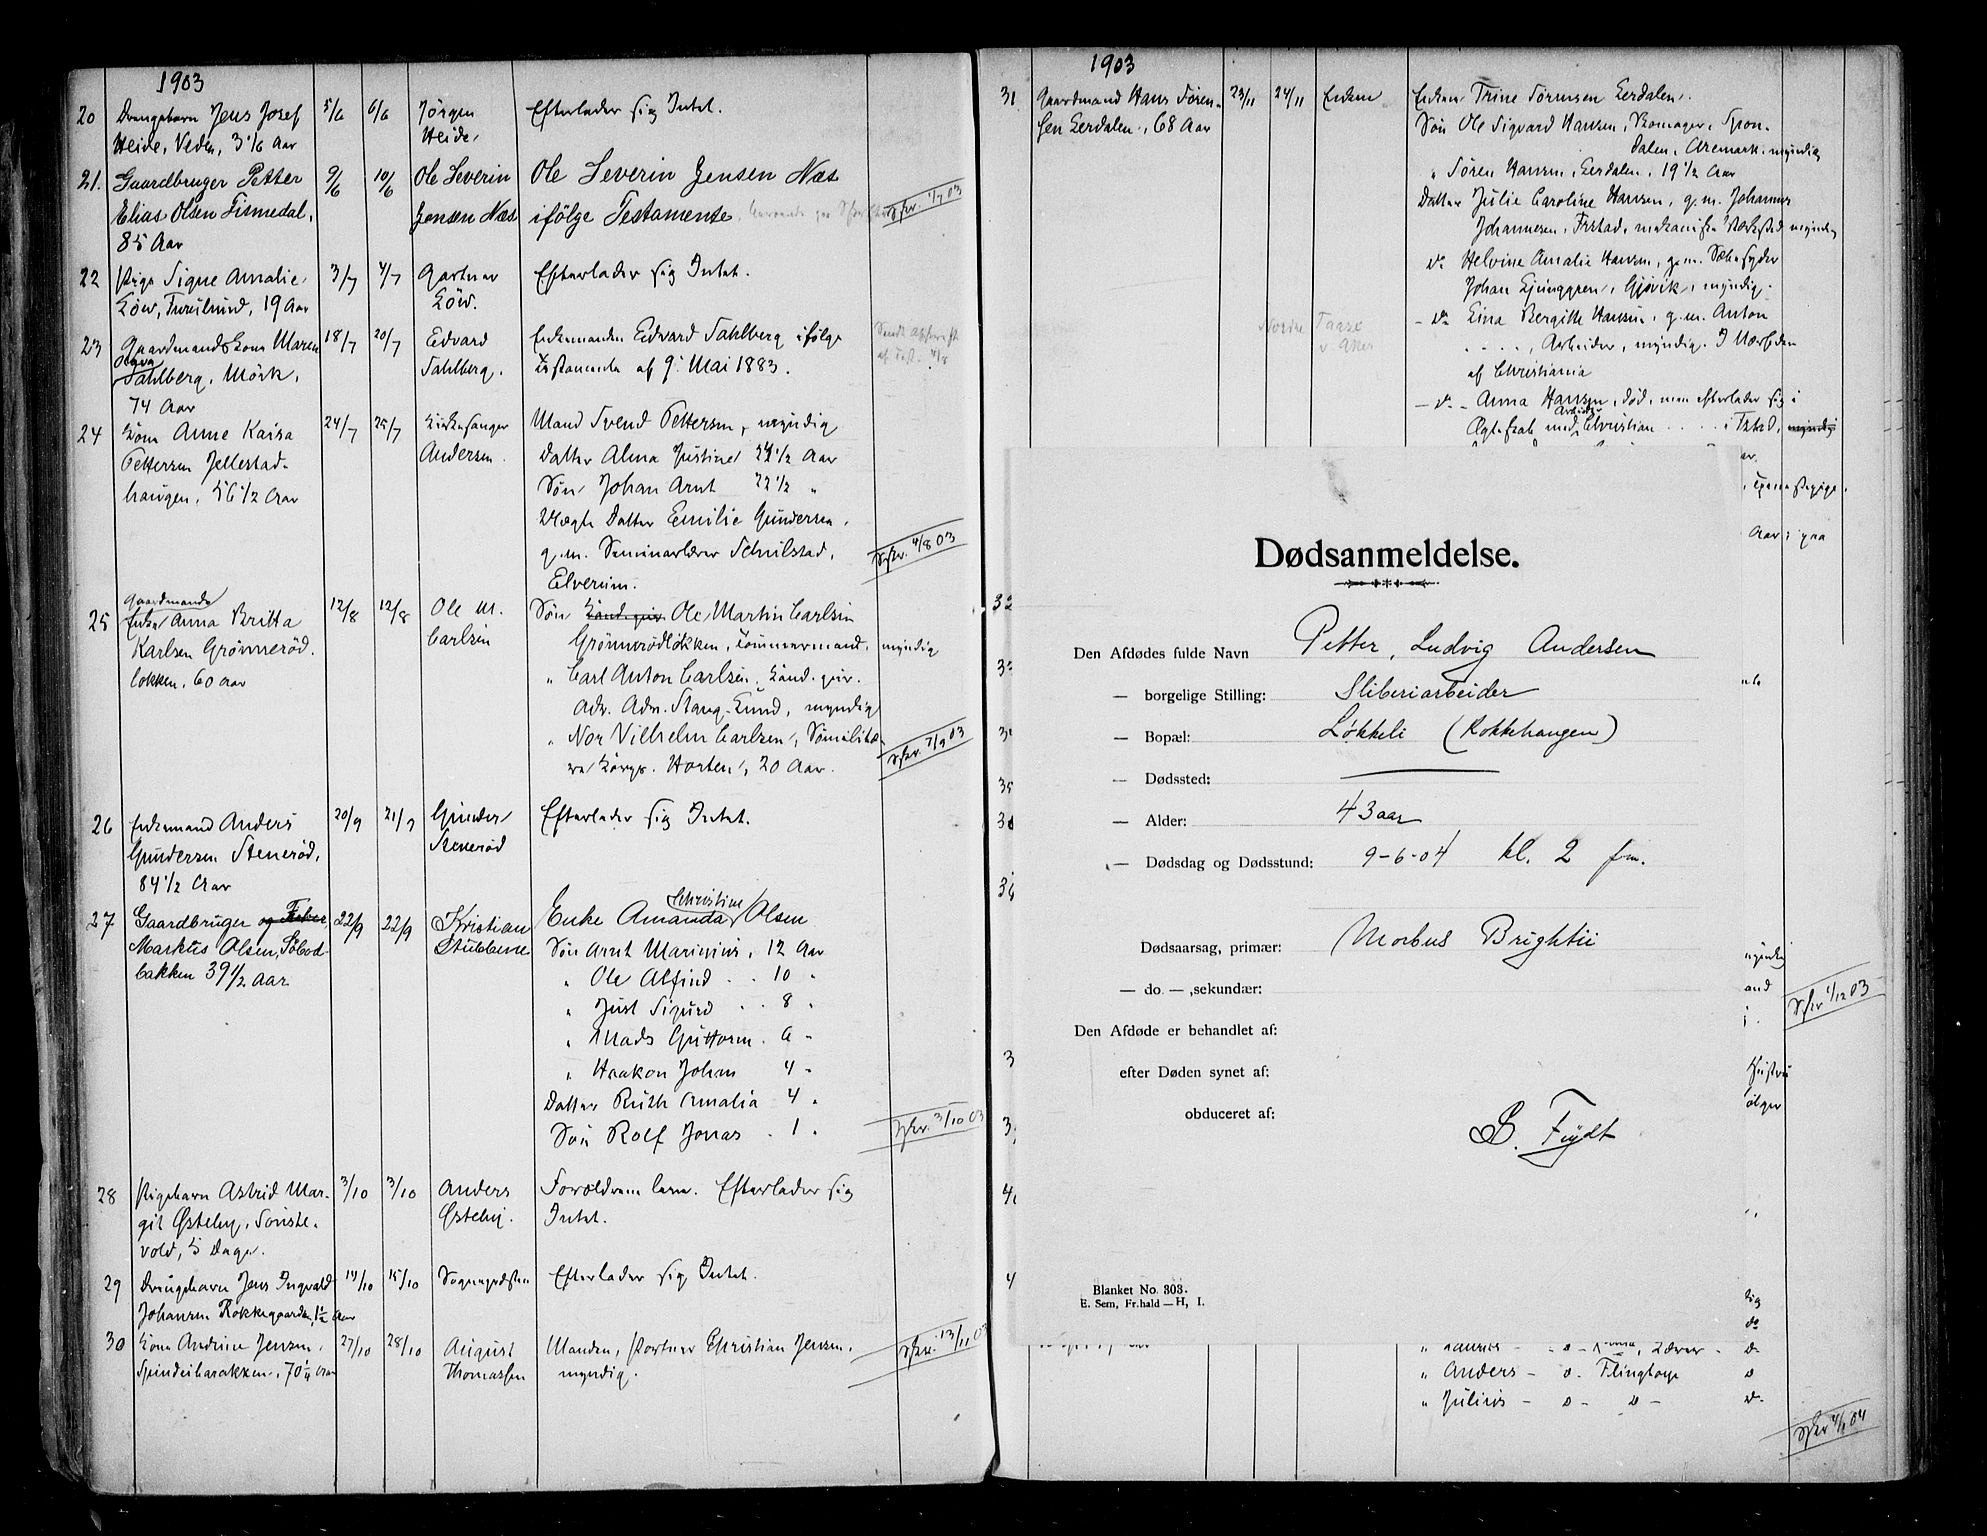 1903
20 Drengebarn Jens Josef 5/6 6/6 Jörgen Efterlader sig Intet.
Heide, Veden, 3 1/6 Aar Heide,
21. Gaardbruger Petter 9/6 10/6 Ole Severin Ole Severin Jensen Næs
Elias Olsen Tismedal, Jensen Næs ifölge Testamente Skr. 1/7 03
85 Aar
22 Pige Signe Amalie 3/7 4/7 Gartner Efterlader sig Intet.
Löw, Furulund, 19 Aar Löw.
23 Gaardmandskone Maren 18/7 20/7 Edvard Enkemanden Edvard Dahlberg ifölge
Olava Dahlberg, Mörk, Dahlberg. Testamente af 9. Mai 1883.
74 Aar
24 Kone Anne Kaisa 24/7 25/7 Kirkesanger Mand Svend Pettersen, myndig
Pettersen Jellestad- Andersen. Datter Alma Justine 24 1/2 Aar
haugen, 56 1/2 Aar Sön Johan Arnt 22 1/2 "
Uægte Datter Emilie Gundersen,
g.m. Seminarlærer Schulstad, Skr. 4/8 03
Elverum.
25 Gaardmands
Enke Anna Britta 12/8 12/8 Ole M. Sön Ole Martin Carlsen
Karlsen Grönneröd- Carlsen Grönnerödlökken, Tömmermand, myndig
lökken, 60 Aar " Carl Anton Carlsen, Kand. jur.
Adr. Adv. Stang-Lund, myndig
" Nor Vilhelm Carlsen, Sömilitæ-
re Korps. Horten, 20 Aar. Skr. 7/9 03
26 Enkemand Anders 20/9 21/9 Gunder Efterlader sig Intet.
Gundersen Steneröd, Steneröd
84 1/2 Aar
27 Gaardbruger 22/9 22/9 Kristian Enke Amanda Christine Olsen
Markus Olsen, Stubberne Sön Arnt Marinius, 12 Aar
bakken 39 1/2 Aar
" Ole Alfind . . 10 "
" Just Sigurd . . 8 "
" Mads Guttorm . 6 "
" Haakon Johan 4 "
Datter Ruth Amalia 4 "
Sön Rolf Jonas . 1 " Skr. 3/10 03
28 Pigebarn Astrid Mar- 3/10 3/10 Anders Forældrene leve. Efterlader sig
git Østeby, Østeby. Intet.
vold, 5 Dage.
29 Drengebarn Jens Ingvald 14/10 15/10 Sognepresten Efterlader sig Intet.
Johansen Rokkegaarden, 1 1/2 Aar
30 Kone Andrine Jensen, 27/10 28/10 August Manden, Portner Christian Jensen, Skr. 13/11 03
Spinderibarakken, 70 1/4 Aar Thomassen myndig.
1903
31 Gaardmand Hans Sören- 23/11 24/11 Enken Enken Trine Sörensen Lerdalen.
sen Lerdalen, 68 Aar Sön Ole Sigvard Hansen, Skomager,
dalen, Aremark, myndig
" Sören Hansen, Lerdalen, 19 1/2 Aar
Datter Julie Caroline Hansen, g.m. Johannes
Johannesen, Tistad, mekaniske Værksted myndig
do Helvine Amalie Hansen, g.m.
Johan Ljunggren, Gjövik, myndig.
- do Lina Bergitte Hansen, g.m. Anton
. . . . , Arbeider, myndig. I Nærheden
af Christiania
- do - Anna Hansen, död, men efterlader sig i
Ægteskab med Arbeider Christian . . . . . i Tistad, myndig
Dødsanmeldelse.
Den Afdødes fulde Navn Petter, Ludvig Andersen
— borgelige Stilling: Sliberiarbeider
— Bopæl: Løkkeli (Rokkehaugen)
— Dødssted: ———
— Alder: 43 aar
— Dødsdag og Dødsstund: 9-6-04 kl. 2 fm.
Dødsaarsag, primær: Morbus Brightii
— do. — ,sekundær:
Den Afdøde er behandlet af:
efter Døden synet af:
obduceret af:
S. Fiydt
Blanket No. 303.
E. Sem, Fr.hald — H, I.
Skr 1/12 03
" Anders - o. Flingtorp
" Julius - o - o -
Skr 4/1 04